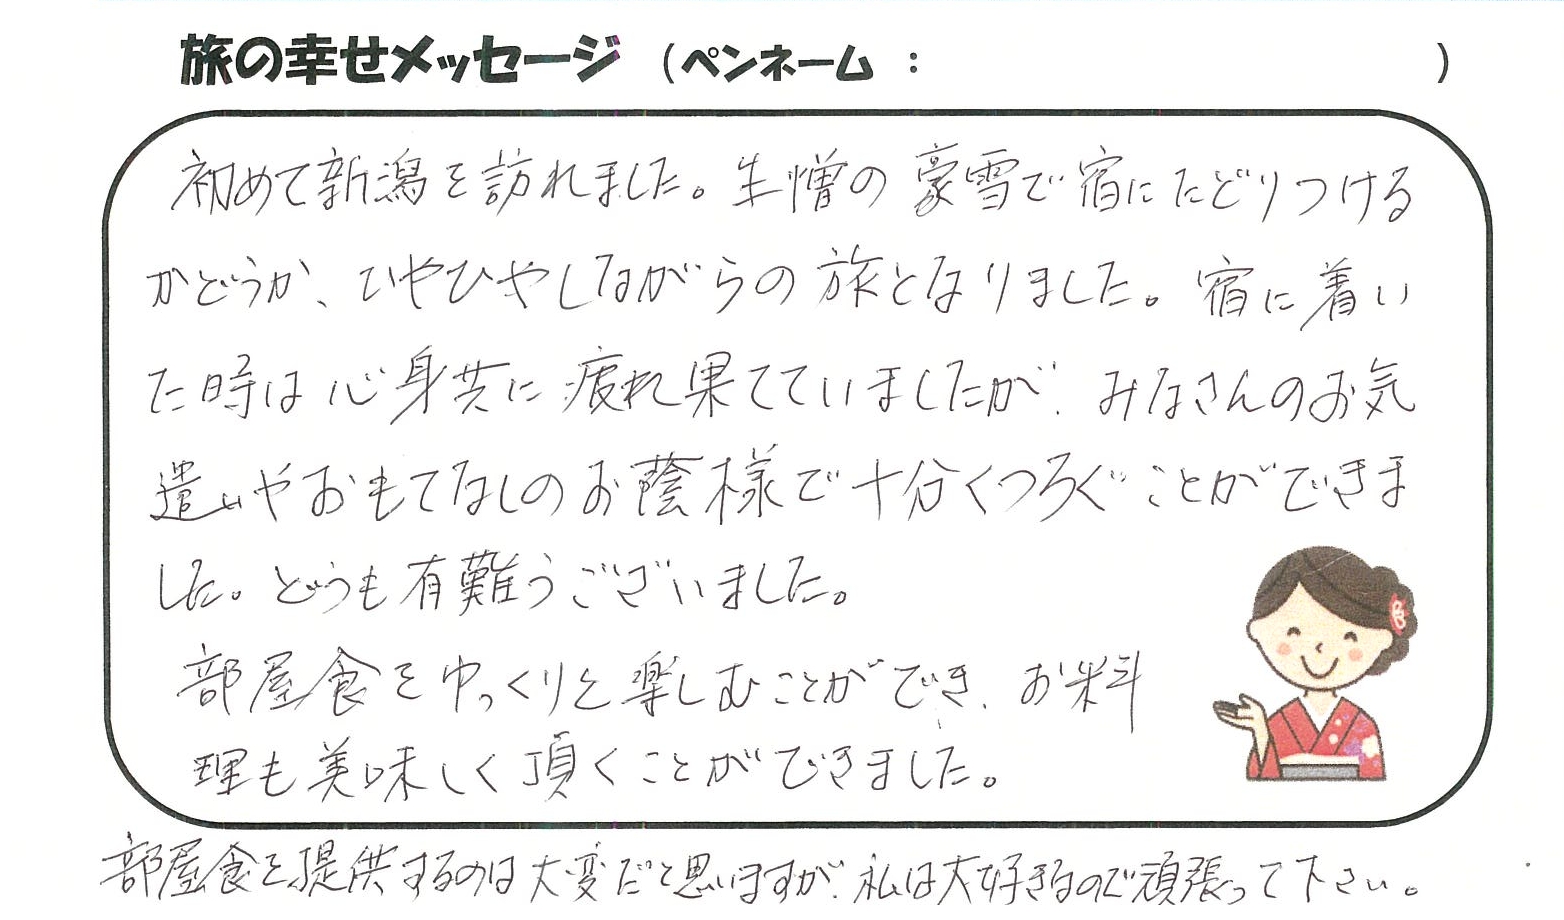 旅の幸せメッセージ (ペンネーム : )
初めて新潟を訪れました。生憎の豪雪で宿にたどりつける
かどうか、ひやひやしながらの旅となりました。宿に着い
た時は心身共に疲れ果てていましたが、みなさんのお気
遣いやおもてなしのお蔭様で十分くつろぐことができま
した。どうも有難うございました。
部屋食をゆっくりと楽しむことができ、お料
理も美味しく頂くことができました。
部屋食を提供するのは大変だと思いますが、私は大好きなので頑張って下さい。